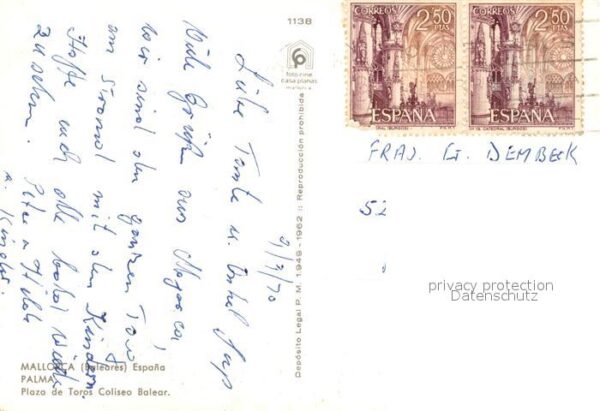 1138
foto-cine
casa planas
21/7/70
Liebe Tante u. Onkel
Viele Grüße aus Mayorca
wir sind den ganzen Tag
am Strand mit den Kindern.
Hoffe euch alle bald wieder
zu sehen. Peter u Hilde
u. Kinder.
MALLORCA (Baleares) España
PALMA.
Plaza de Toros Coliseo Balear.
Depósito Legal P. M. 1.949 - 1962 :: Reproducción prohibida
CORREOS 2,50 PTAS
ESPAÑA
CORREOS 2,50 PTAS
ESPAÑA
FRAU. G. DEMBECK
52
privacy protection
Datenschutz